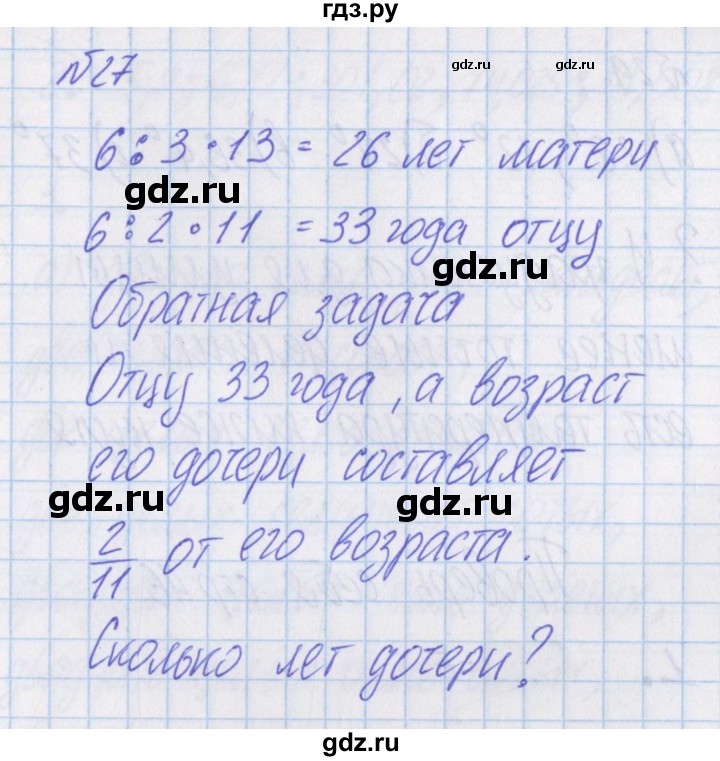 гдз.ру
№27
gdz.ru
gdz.ru
6:3·13=26 лет матери
gdz.ru
6:2·11=33 года отцу
gdz.ru
Обратная задача
Отцу 33 года, а возраст
его дочери составляет
gdz.ru
gdz.ru
2/11 от его возраста.
Сколько лет дочери?
gdz.ru